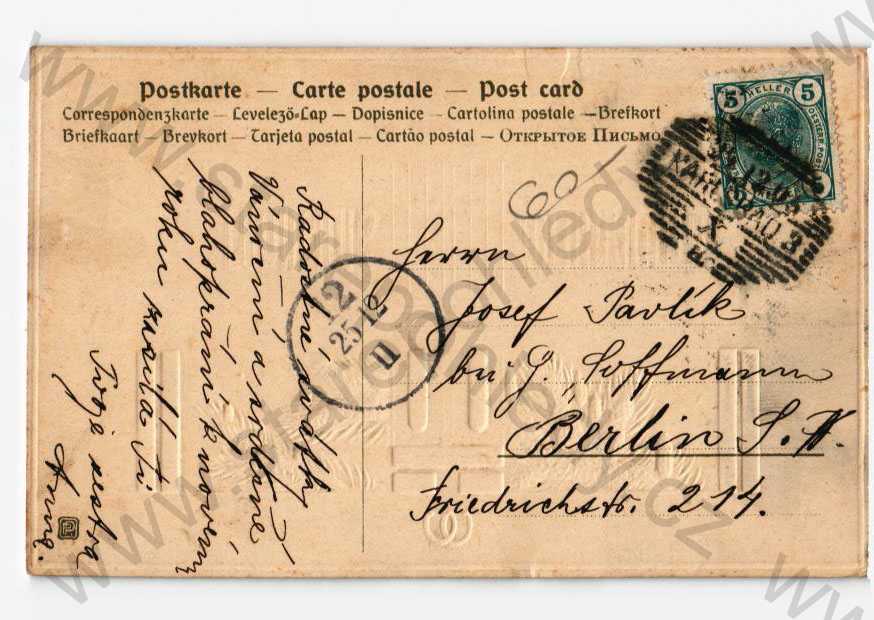 Postkarte — Carte postale — Post card
Correspondenzkarte — Levelező-Lap — Dopisnice — Cartolina postale — Brefkort
Briefkaart — Brevkort — Tarjeta postal — Cartão postal — Открытое Письмо
5 HELLER 5
12
KARLSBAD 3
X
60
2
25 12
11
Radostné svátky
Vánoční a srdečné
blahopřání k novému
roku zasílá Ti
Tvoje sestra
Anna.
Herrn
Josef Pavlík
bei G. Hoffmann
Berlin S. W.
Friedrichstr. 214.
www.starepohledy.cz